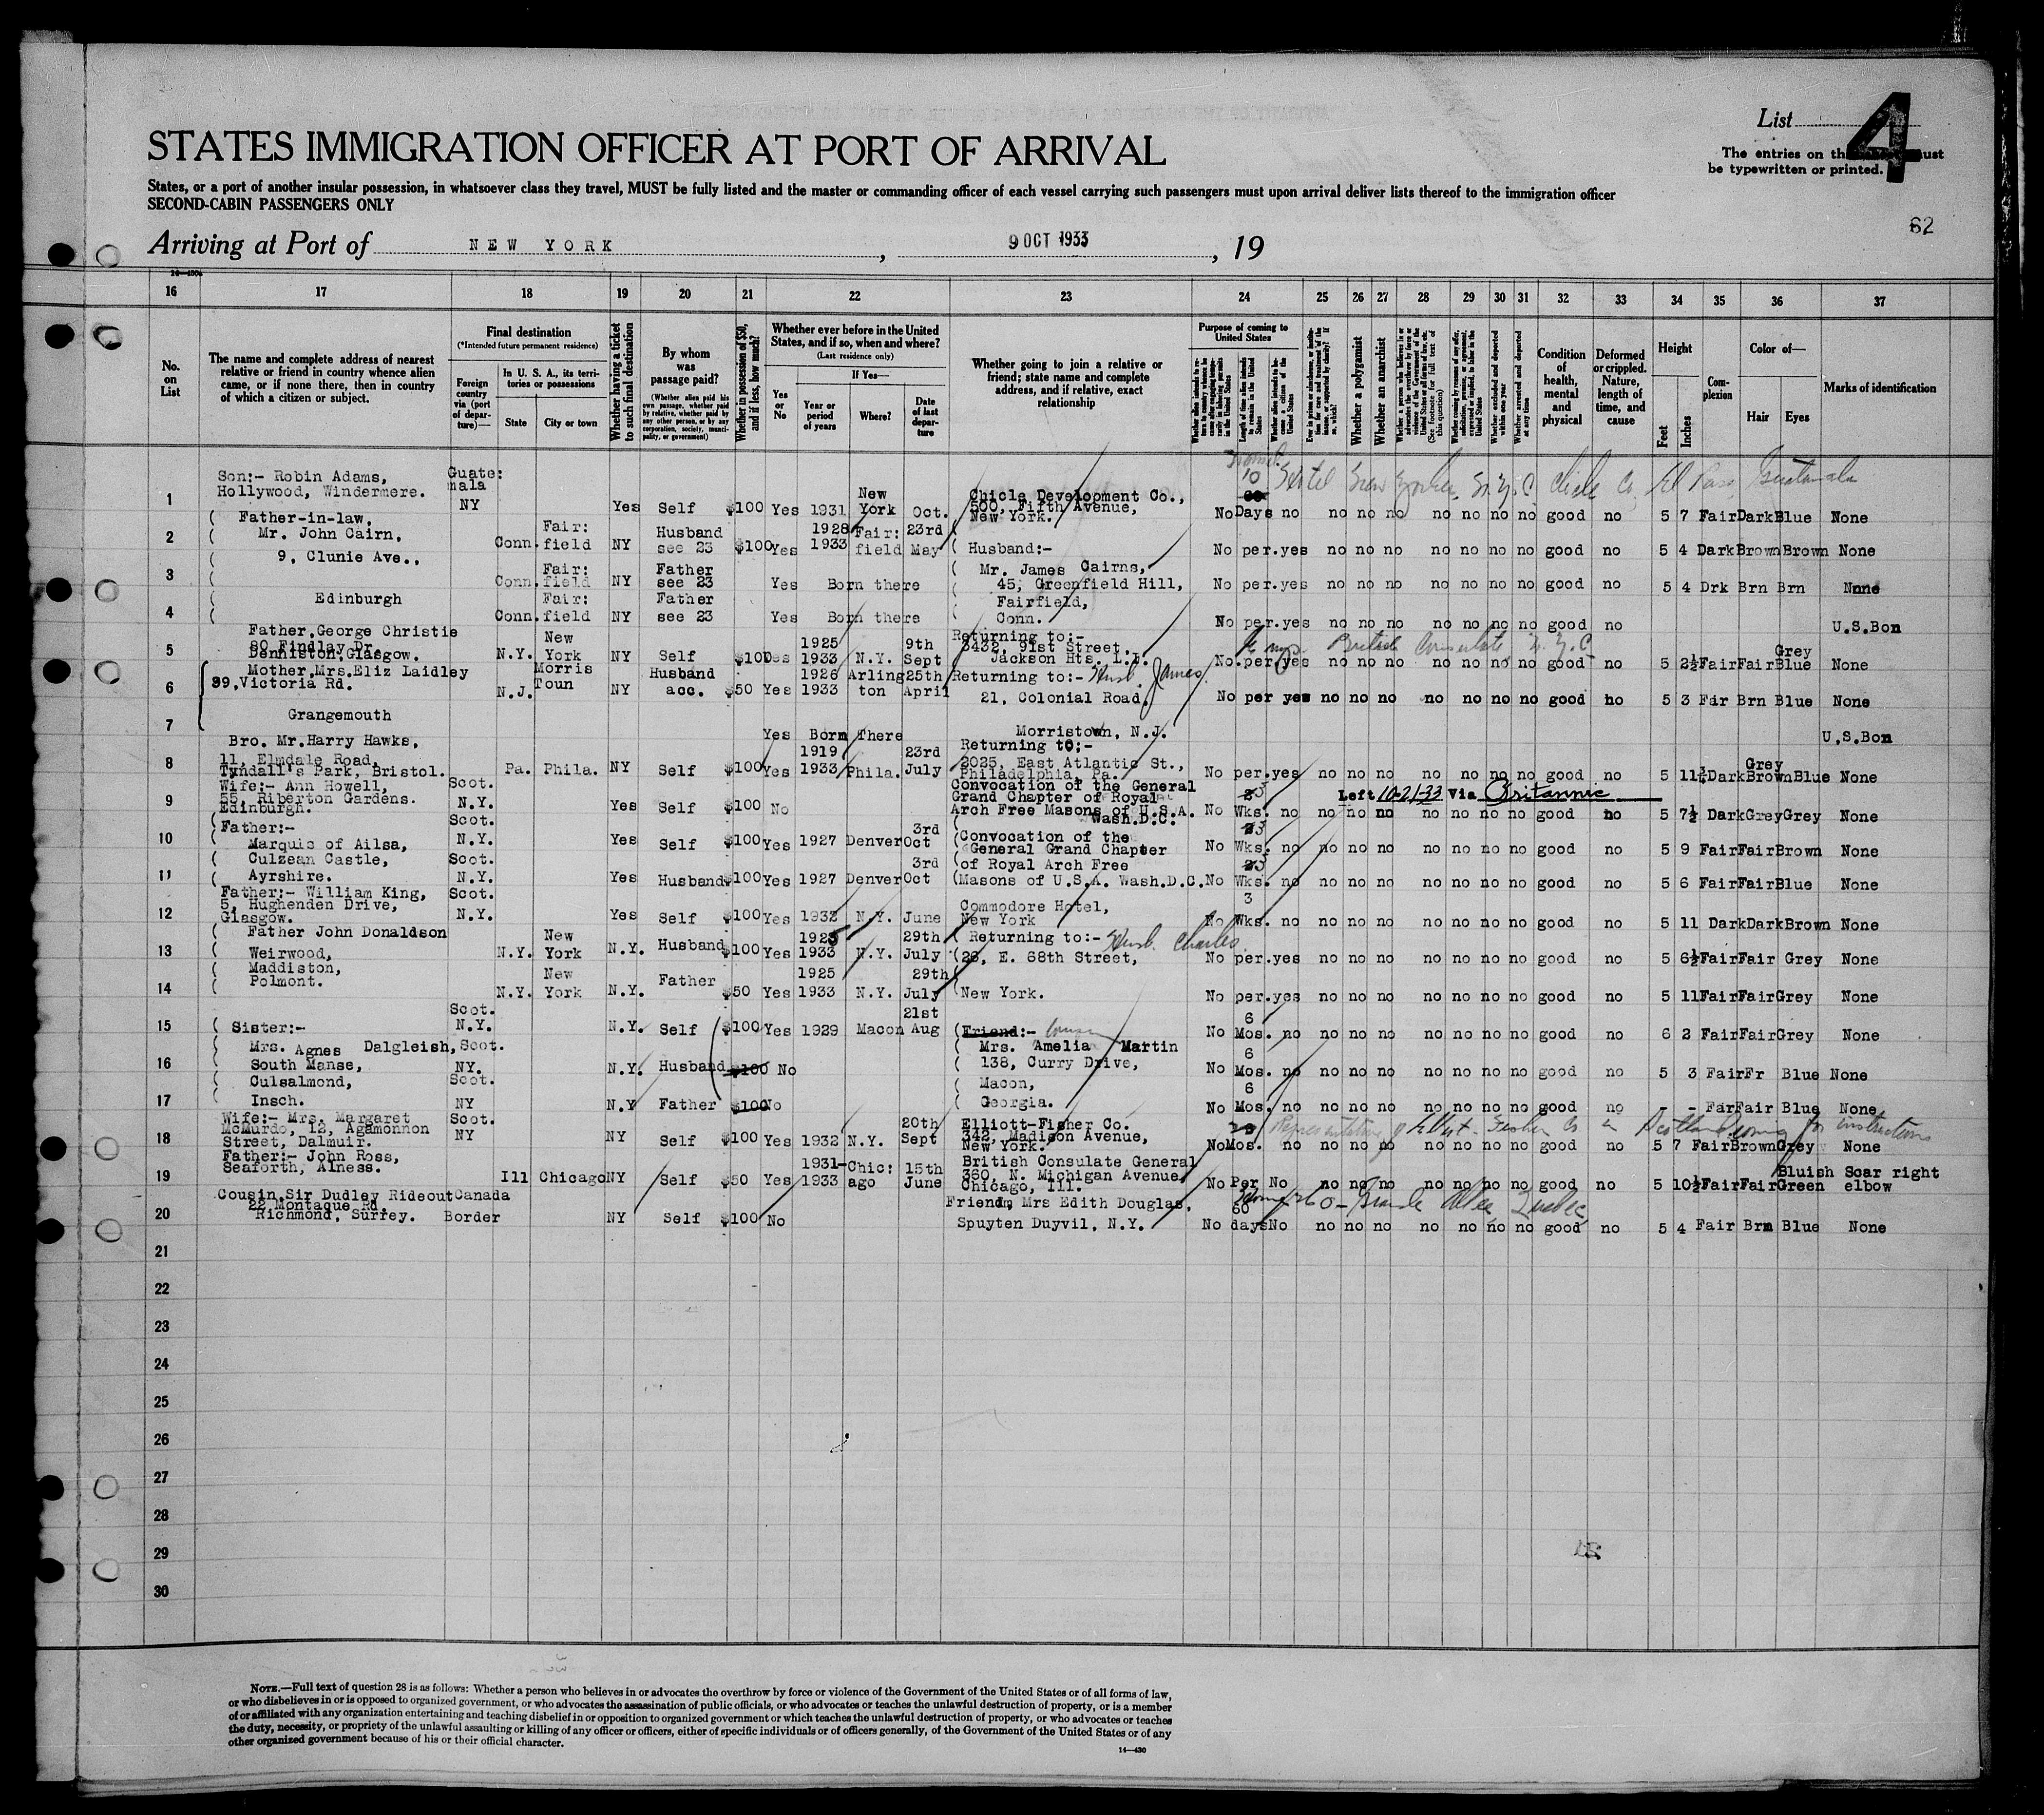 List 4
The entries on this must
be typewritten or printed.
STATES IMMIGRATION OFFICER AT PORT OF ARRIVAL
States, or a port of another insular possession, in whatsoever class they travel, MUST be fully listed and the master or commanding officer of each vessel carrying such passengers must upon arrival deliver lists thereof to the immigration officer
SECOND-CABIN PASSENGERS ONLY
62
Arriving at Port of NEW YORK, 9 OCT 1933, 19
16 17 18 19 20 21 22 23 24 25 26 27 28 29 30 31 32 33 34 35 36 37
No. on List
The name and complete address of nearest relative or friend in country whence alien came, or if none there, then in country of which a citizen or subject.
Final destination
(*Intended future permanent residence)
Foreign country via (port of departure)—
In U. S. A., its territories or possessions
State City or town
Whether having a ticket to such final destination
By whom was passage paid?
(Whether alien paid his own passage, whether paid by relative, whether paid by any other person, or by any corporation, society, municipality, or government)
Whether in possession of $50, and if less, how much?
Whether ever before in the United States, and if so, when and where?
(Last residence only)
Yes or No
If Yes—
Year or period of years
Where?
Date of last departure
Whether going to join a relative or friend; state name and complete address, and if relative, exact relationship
Purpose of coming to United States
Whether a polygamist
Whether an anarchist
Condition of health, mental and physical
Deformed or crippled. Nature, length of time, and cause
Height
Feet Inches
Complexion
Color of—
Hair Eyes
Marks of identification
1 Son:- Robin Adams, Hollywood, Windermere. Guate: mala NY Yes Self $100 Yes 1931 New York Oct. Chicle Development Co., 500, Fifth Avenue, New York. No 10 Days no no no no no no no no good no 5 7 Fair Dark Blue None
2 ( Father-in-law, Mr. John Cairn, Conn. Fair: field NY Husband see 23 $100 Yes 1928 1933 Fair: field 23rd May ( Husband:- No per. yes no no no no no no no good no 5 4 Dark Brown Brown None
3 ( 9, Clunie Ave., Conn. Fair: field NY Father see 23 Yes Born there ( Mr. James Cairns, 45, Greenfield Hill, No per. yes no no no no no no no good no 5 4 Drk Brn Brn None
4 ( Edinburgh Conn. Fair: field NY Father see 23 Yes Born there ( Fairfield, Conn. No per. yes no no no no no no no good no U.S.Bon
5 Father, George Christie 80, Findlay Dr. Denniston, Glasgow. N.Y. New York NY Self $100 Yes 1925 1933 N.Y. 9th Sept Returning to:- 3432, 91st Street, Jackson Hts. L.I. British Consulate N.Y.C No. per. yes no no no no no no no good no 5 2½ Fair Fair Grey Blue None
6 Mother, Mrs. Eliz Laidley 39, Victoria Rd. N.J. Morris Toun NY Husband acc. $50 Yes 1926 1933 Arling ton 25th April Returning to:- Husb. James 21, Colonial Road, No per yes no no no no no no no good no 5 3 Fair Brn Blue None
7 Grangemouth Yes Born There Morristown, N.J. U.S.Bon
8 Bro. Mr. Harry Hawks, 11, Elmdale Road, Tyndall's Park, Bristol. Pa. Phila. NY Self $100 Yes 1919 1933 Phila. 23rd July Returning to:- 2025, East Atlantic St., Philadelphia, Pa. No per. yes no no no no no no no good no 5 11¾ Dark Brown Grey Blue None
9 Wife:- Ann Howell, 55, Riberton Gardens. Edinburgh. Scot. N.Y. Yes Self $100 No Convocation of the General Grand Chapter of Royal Arch Free Masons of U.S.A. Wash.D.C. Left 10-21-33 Via Britannic No 3 Wks. no no no no no no no no good no 5 7½ Dark Grey Grey None
10 ( Father:- Marquis of Ailsa, Scot. N.Y. Yes Self $100 Yes 1927 Denver 3rd Oct (Convocation of the General Grand Chapter No 3 Wks. no no no no no no no no good no 5 9 Fair Fair Brown None
11 ( Culzean Castle, Ayrshire. Scot. N.Y. Yes Husband $100 Yes 1927 Denver 3rd Oct (of Royal Arch Free (Masons of U.S.A. Wash.D.C. No 3 Wks. no no no no no no no no good no 5 6 Fair Fair Blue None
12 Father:- William King, 5, Hughenden Drive, Glasgow. Scot. N.Y. Yes Self $100 Yes 1933 N.Y. June Commodore Hotel, New York No 3 Wks. no no no no no no no no good no 5 11 Dark Dark Brown None
13 ( Father John Donaldson ( Weirwood, N.Y. New York N.Y. Husband $100 Yes 1925 1933 N.Y. 29th July ( Returning to:- Husb. Charles (26, E. 68th Street, No per. yes no no no no no no no good no 5 6½ Fair Fair Grey None
14 ( Maddiston, ( Polmont. N.Y. New York N.Y. Father $50 Yes 1925 1933 N.Y. 29th July (New York. No per. yes no no no no no no no good no 5 11 Fair Fair Grey None
15 ( Sister:- Scot. N.Y. N.Y. Self $100 Yes 1929 Macon 21st Aug (Friend:- Cousin No 6 Mos. no no no no no no no no good no 6 2 Fair Fair Grey None
16 ( Mrs. Agnes Dalgleish, ( South Manse, Scot. NY. N.Y. Husband $100 No ( Mrs. Amelia Martin ( 138, Curry Drive, No 6 Mos. no no no no no no no no good no 5 3 Fair Fr Blue None
17 ( Culsalmond, ( Insch. Scot. NY N.Y Father $100 No ( Macon, ( Georgia. No 6 Mos. no no no no no no no no good no - Far Fair Blue None
18 Wife:- Mrs. Margaret McMurdo, 12, Agamonnon Street, Dalmuir. Scot. NY NY Self $100 Yes 1932 N.Y. 20th Sept Elliott-Fisher Co. 342, Madison Avenue, New York. No Mos. no no no no no no no no good no 5 7 Fair Brown Grey None
19 Father:- John Ross, Seaforth, Alness. Ill Chicago NY Self $50 Yes 1931-1933 Chic: ago 15th June British Consulate General 360, N. Michigan Avenue Chicago, Ill. No Per No no no no no no no no good no 5 10½ Fair Fair Green Bluish Scar right elbow
20 Cousin, Sir Dudley Rideout 22 Montague Rd. Richmond, Surrey. Canada Border NY Self $100 No Friend, Mrs Edith Douglas, Spuyten Duyvil, N.Y. No 60 days No no no no no no no no good no 5 4 Fair Brn Blue None
21
22
23
24
25
26
27
28
29
30
NOTE.—Full text of question 28 is as follows: Whether a person who believes in or advocates the overthrow by force or violence of the Government of the United States or of all forms of law,
or who disbelieves in or is opposed to organized government, or who advocates the assassination of public officials, or who advocates or teaches the unlawful destruction of property, or is a member
of or affiliated with any organization entertaining and teaching disbelief in or opposition to organized government or which teaches the unlawful destruction of property, or who advocates or teaches
the duty, necessity, or propriety of the unlawful assaulting or killing of any officer or officers, either of specific individuals or of officers generally, of the Government of the United States or of any
other organized government because of his or their official character.
14—430